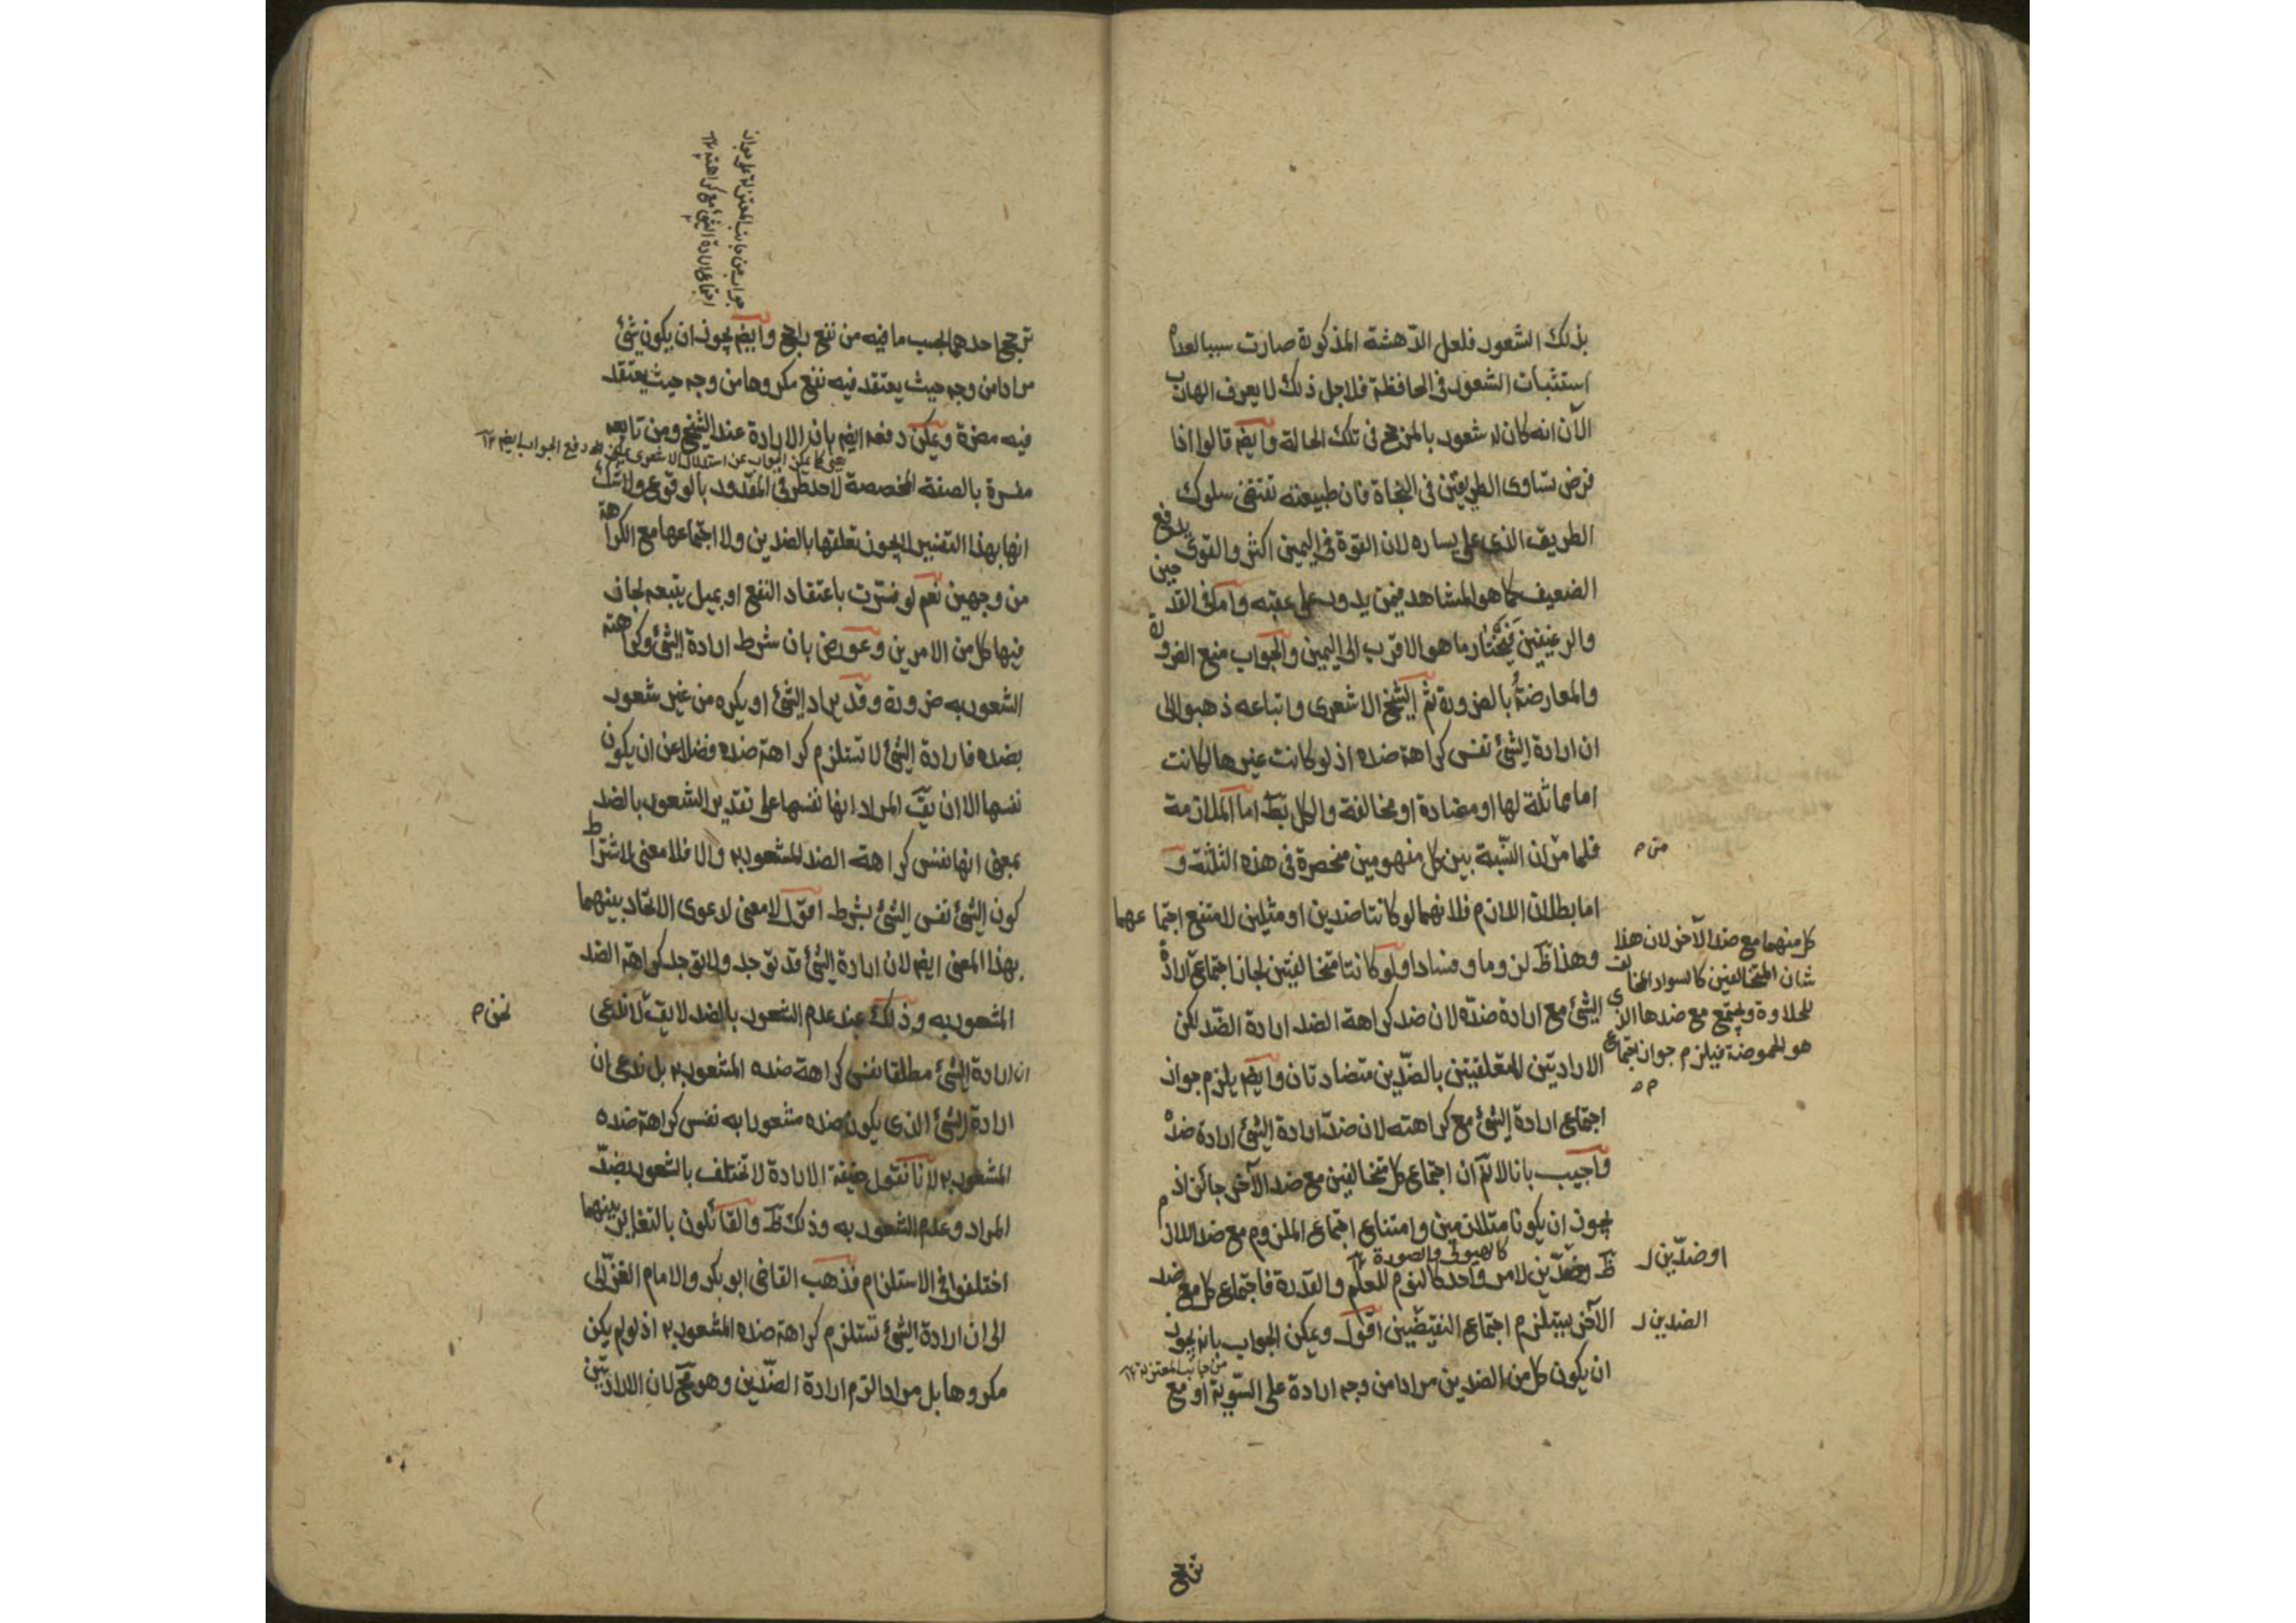 بذلك الشعور فلعل الدهشة المذكورة صارت سببا لعدم
استثبات الشعور فى الحافظة فلاجل ذلك لا يعرف الهارب
الآن انه كان له شعور بالمرجح فى تلك الحالة وايضم قالوا اذا
فرض تساوى الطريقين فى النجاة فان طبيعته تقتضى سلوك
الطريق الذى على يساره لان القوة فى اليمين اكثر والقوى يدفع
الضعيف كما هو المشاهد فيمن يدور على عقبه واما فى القدحين
والرغيفين فيختار ما هو الاقرب الى اليمين والجواب منع الضرورة
والمعارضة بالضرورة ثم الشيخ الاشعرى واتباعه ذهبوا الى
ان ارادة الشئ نفس كراهة ضده اذ لو كانت غيرها لكانت
اما مماثلة لها او مضادة او مخالفة والكل بط اما الملازمة
فلما مر ان النسبة بين كل مفهومين منحصرة فى هذه الثلثة و
اما بطلان اللازم فلانهما لو كانتا ضدين او مثلين لامتنع اجتماعهما
وهذا ظ لزوما وفسادا ولو كانتا متخالفتين لجاز اجتماع ارادة
الشئ مع ارادة ضده لان ضد كراهة الضد ارادة الضد لكن
الارادتين المتعلقتين بالضدين متضادتان وايضم يلزم جواز
اجتماع ارادة الشئ مع كراهته لان ضد ارادة الشئ ارادة ضده
واجيب بانا لا نم ان اجتماع كل متخالفين مع ضد الآخر جائز اذ
يجوز ان يكونا متلازمين وامتناع اجتماع الملزوم مع ضد اللازم
كالهيولى والصورة ١٢
ظ وضدين لامر واحد كالنوم للعلم والقدرة فاجتماع كل مع ضد
الآخر يستلزم اجتماع النقيضين اقول ويمكن الجواب بانه يجوز
من جانب المعتزلة ١٢
ان يكون كل من الضدين مرادا من وجه ارادة على السوية او مع
متن م
كل منهما مع ضد الآخر لان هذا
شان المتخالفين كالسواد المخالف
للحلاوة ويجتمع مع ضدها الذى
هو الحموضة فيلزم جواز اجتماع
م م
او ضدين ل
الضدين ل
ترجح
جواب من جانب المعتزلة على جواز
اجتماع ارادة الشئ مع كراهته ١٢
ترجح احدهما بحسب ما فيه من نفع راجح وايضم يجوز ان يكون شئ
مرادا من وجه حيث يعتقد فيه نفع مكروها من وجه حيث يعتقد
فيه مضرة ويمكن دفعه ايضم بان الارادة عند الشيخ ومن تابعه
يعنى كما يمكن الجواب عن استدلال الاشعرى يمكن له دفع الجواب ايضم ١٢
مفسرة بالصفة المخصصة لاحد طرفى المقدور بالوقوع ولا شك
انها بهذا التفسير لا يجوز تعلقها بالضدين ولا اجتماعها مع الكراهة
من وجهين نعم لو فسرت باعتقاد النفع او بميل يتبعه لجاز
فيها كل من الامرين وعورض بان شرط ارادة الشئ وكراهته
الشعور به ضرورة وقد يراد الشئ او يكره من غير شعور
بضده فارادة الشئ لا تستلزم كراهة ضده فضلا عن ان يكون
نفسها الا ان يق المراد انها نفسها على تقدير الشعور بالضد
بمعنى انها نفس كراهة الضد المشعور به والا فلا معنى لاشتراط
كون الشئ نفس الشئ بشرط اقول لا معنى لدعوى الاتحاد بينهما
بهذا المعنى ايضم لان ارادة الشئ قد توجد ولا يوجد كراهة الضد
المشعور به وذلك عند عدم الشعور بالضد لا يق لا ندعى
ان ارادة الشئ مطلقا نفس كراهة ضده المشعور به بل ندعى ان
ارادة الشئ الذى يكون ضده مشعورا به نفس كراهة ضده
المشعور به لانا نقول حقيقة الارادة لا تختلف بالشعور بضد
المراد وعدم الشعور به وذلك ظ والقائلون بالتغاير بينهما
اختلفوا فى الاستلزام فذهب القاضى ابو بكر والامام الغزالى
الى ان ارادة الشئ تستلزم كراهة ضده المشعور به اذ لو لم يكن
مكروها بل مرادا لزم ارادة الضدين وهو مح لان الارادتين
نحن م